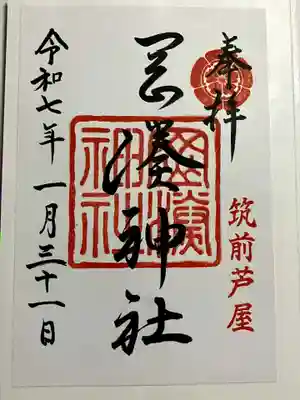 奉拝
筑前芦屋
岡湊神社
岡湊神社
令和七年 一月三十一日